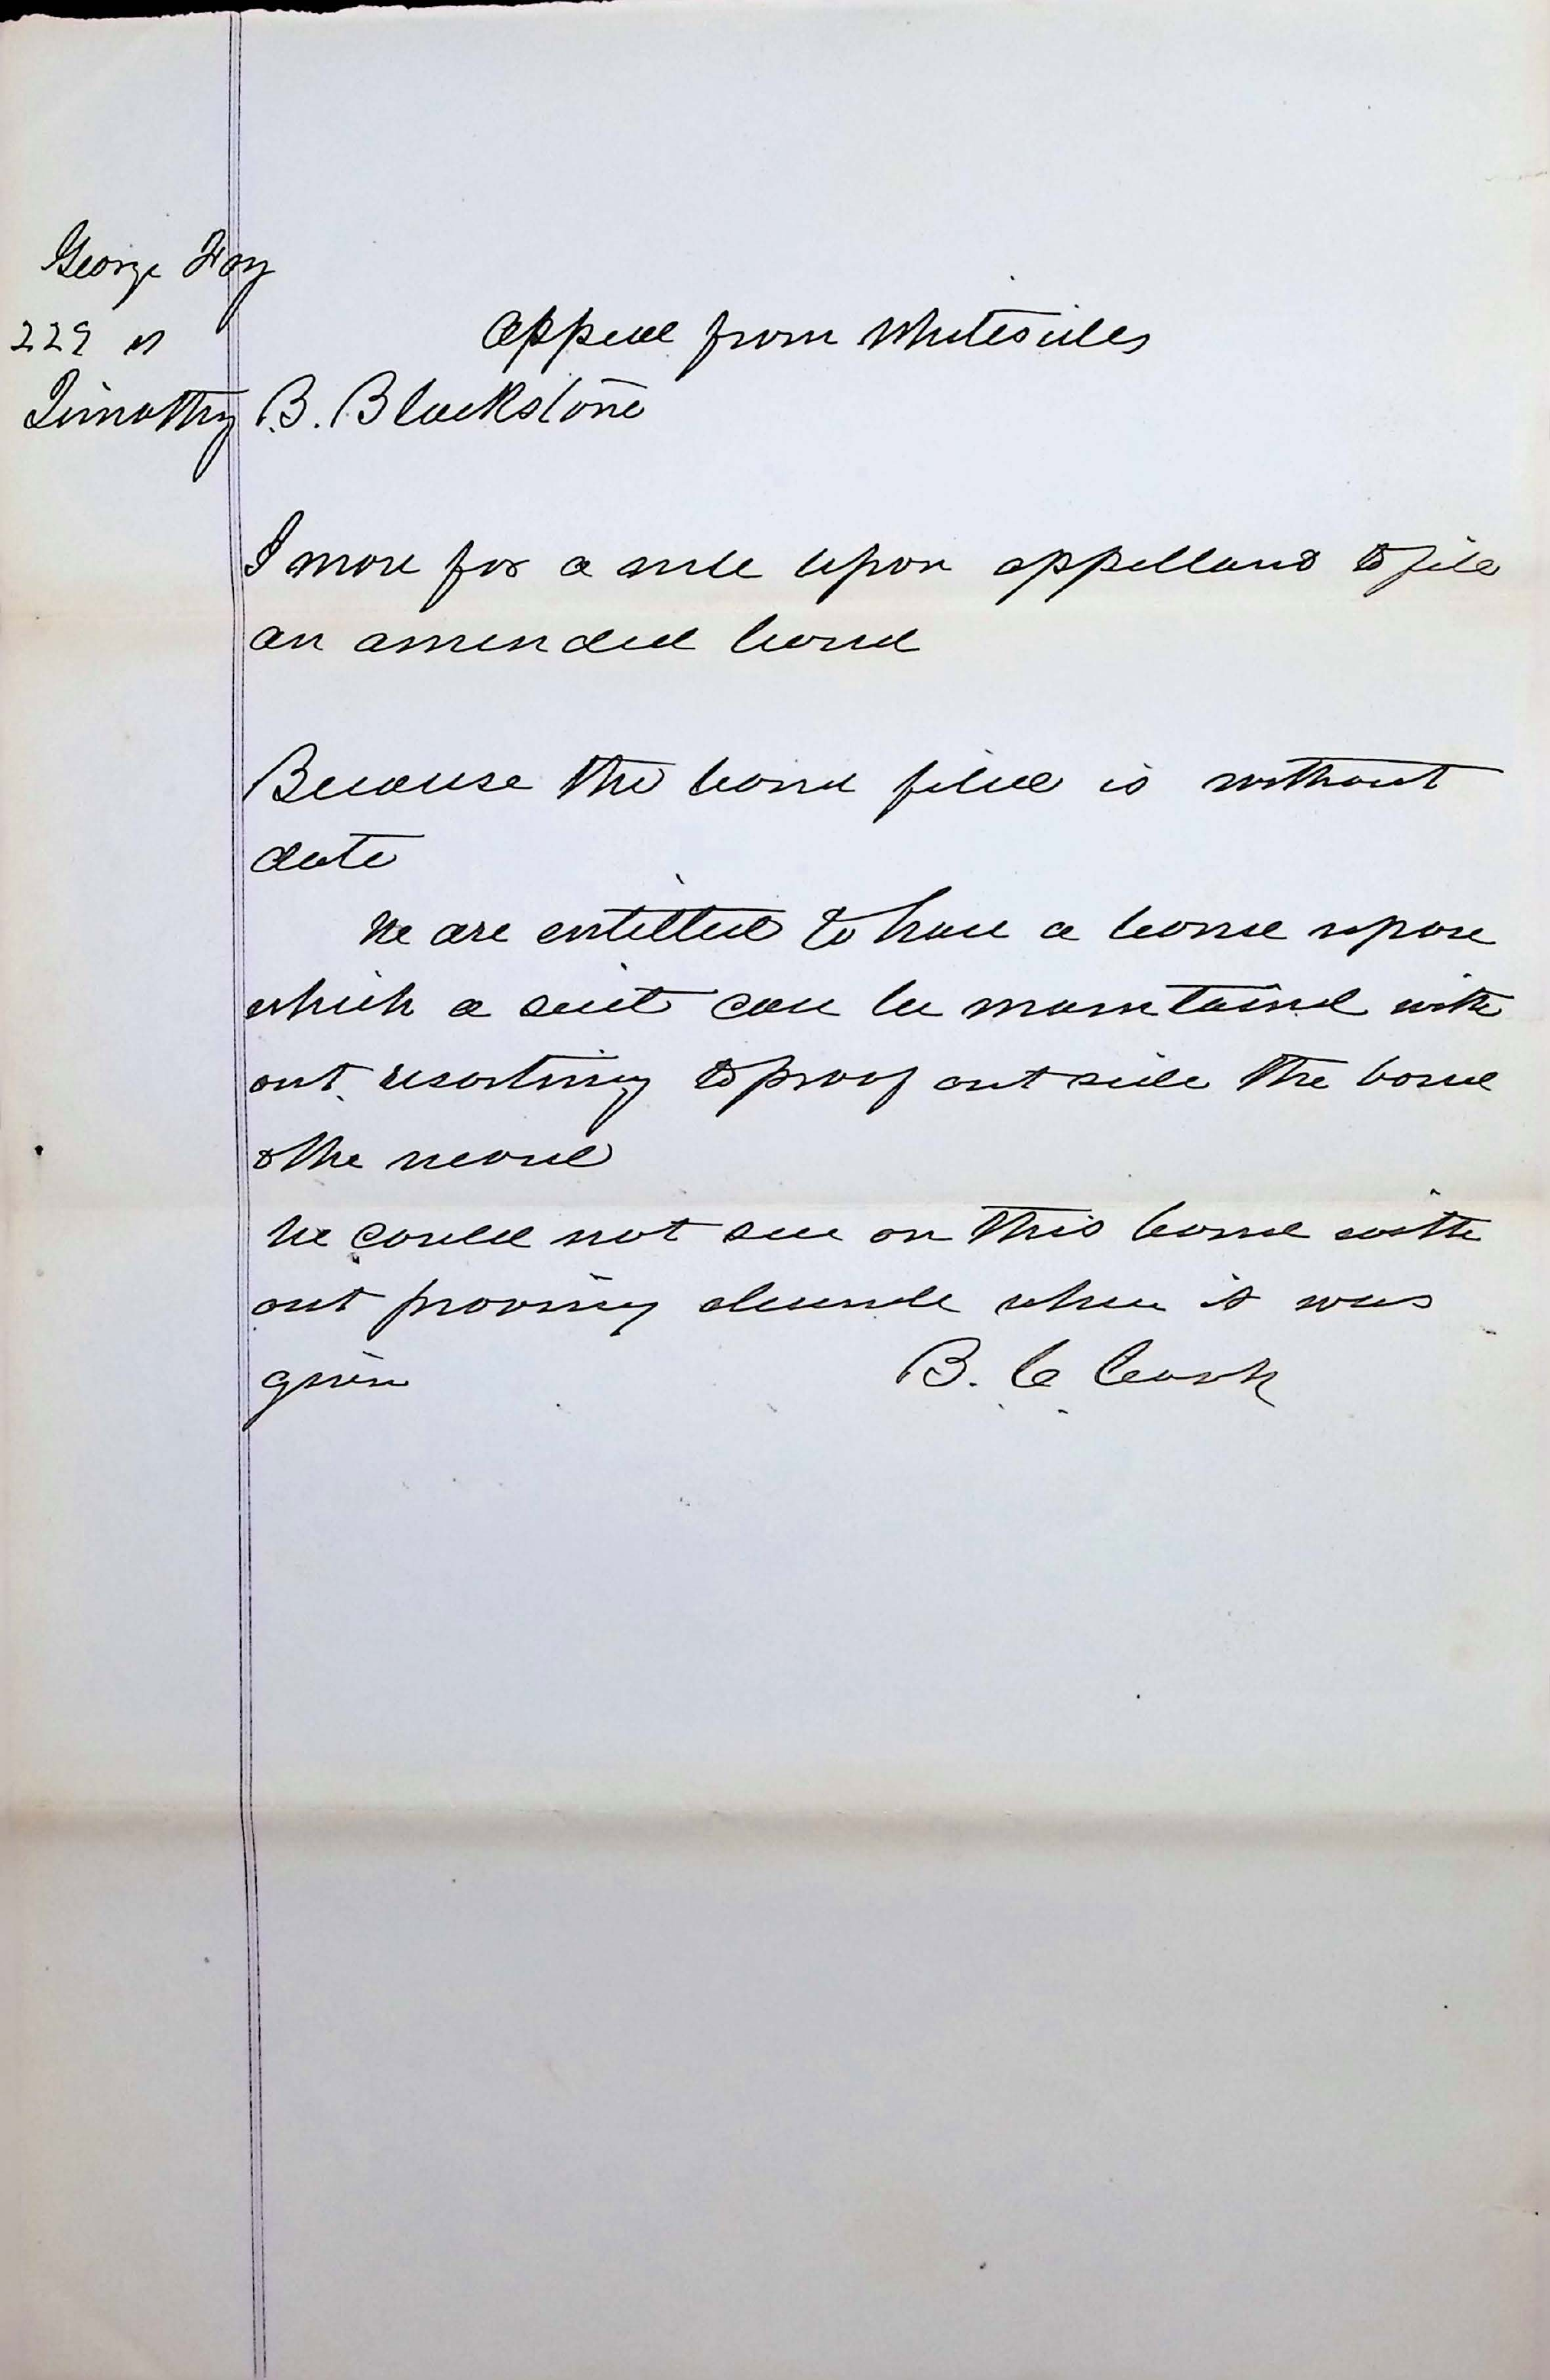 George Fay
229 vs Appeal from Whitesides
Timothy B. Blackstone
I move for a rule upon appellant to file
an amended bond
Because the bond filed is without
date
We are entitled to have a bond upon
which a suit can be maintained with
out resorting to proof out side the bond
& the record
We could not sue on this bond with
out proving aliunde when it was
given B. C Cook